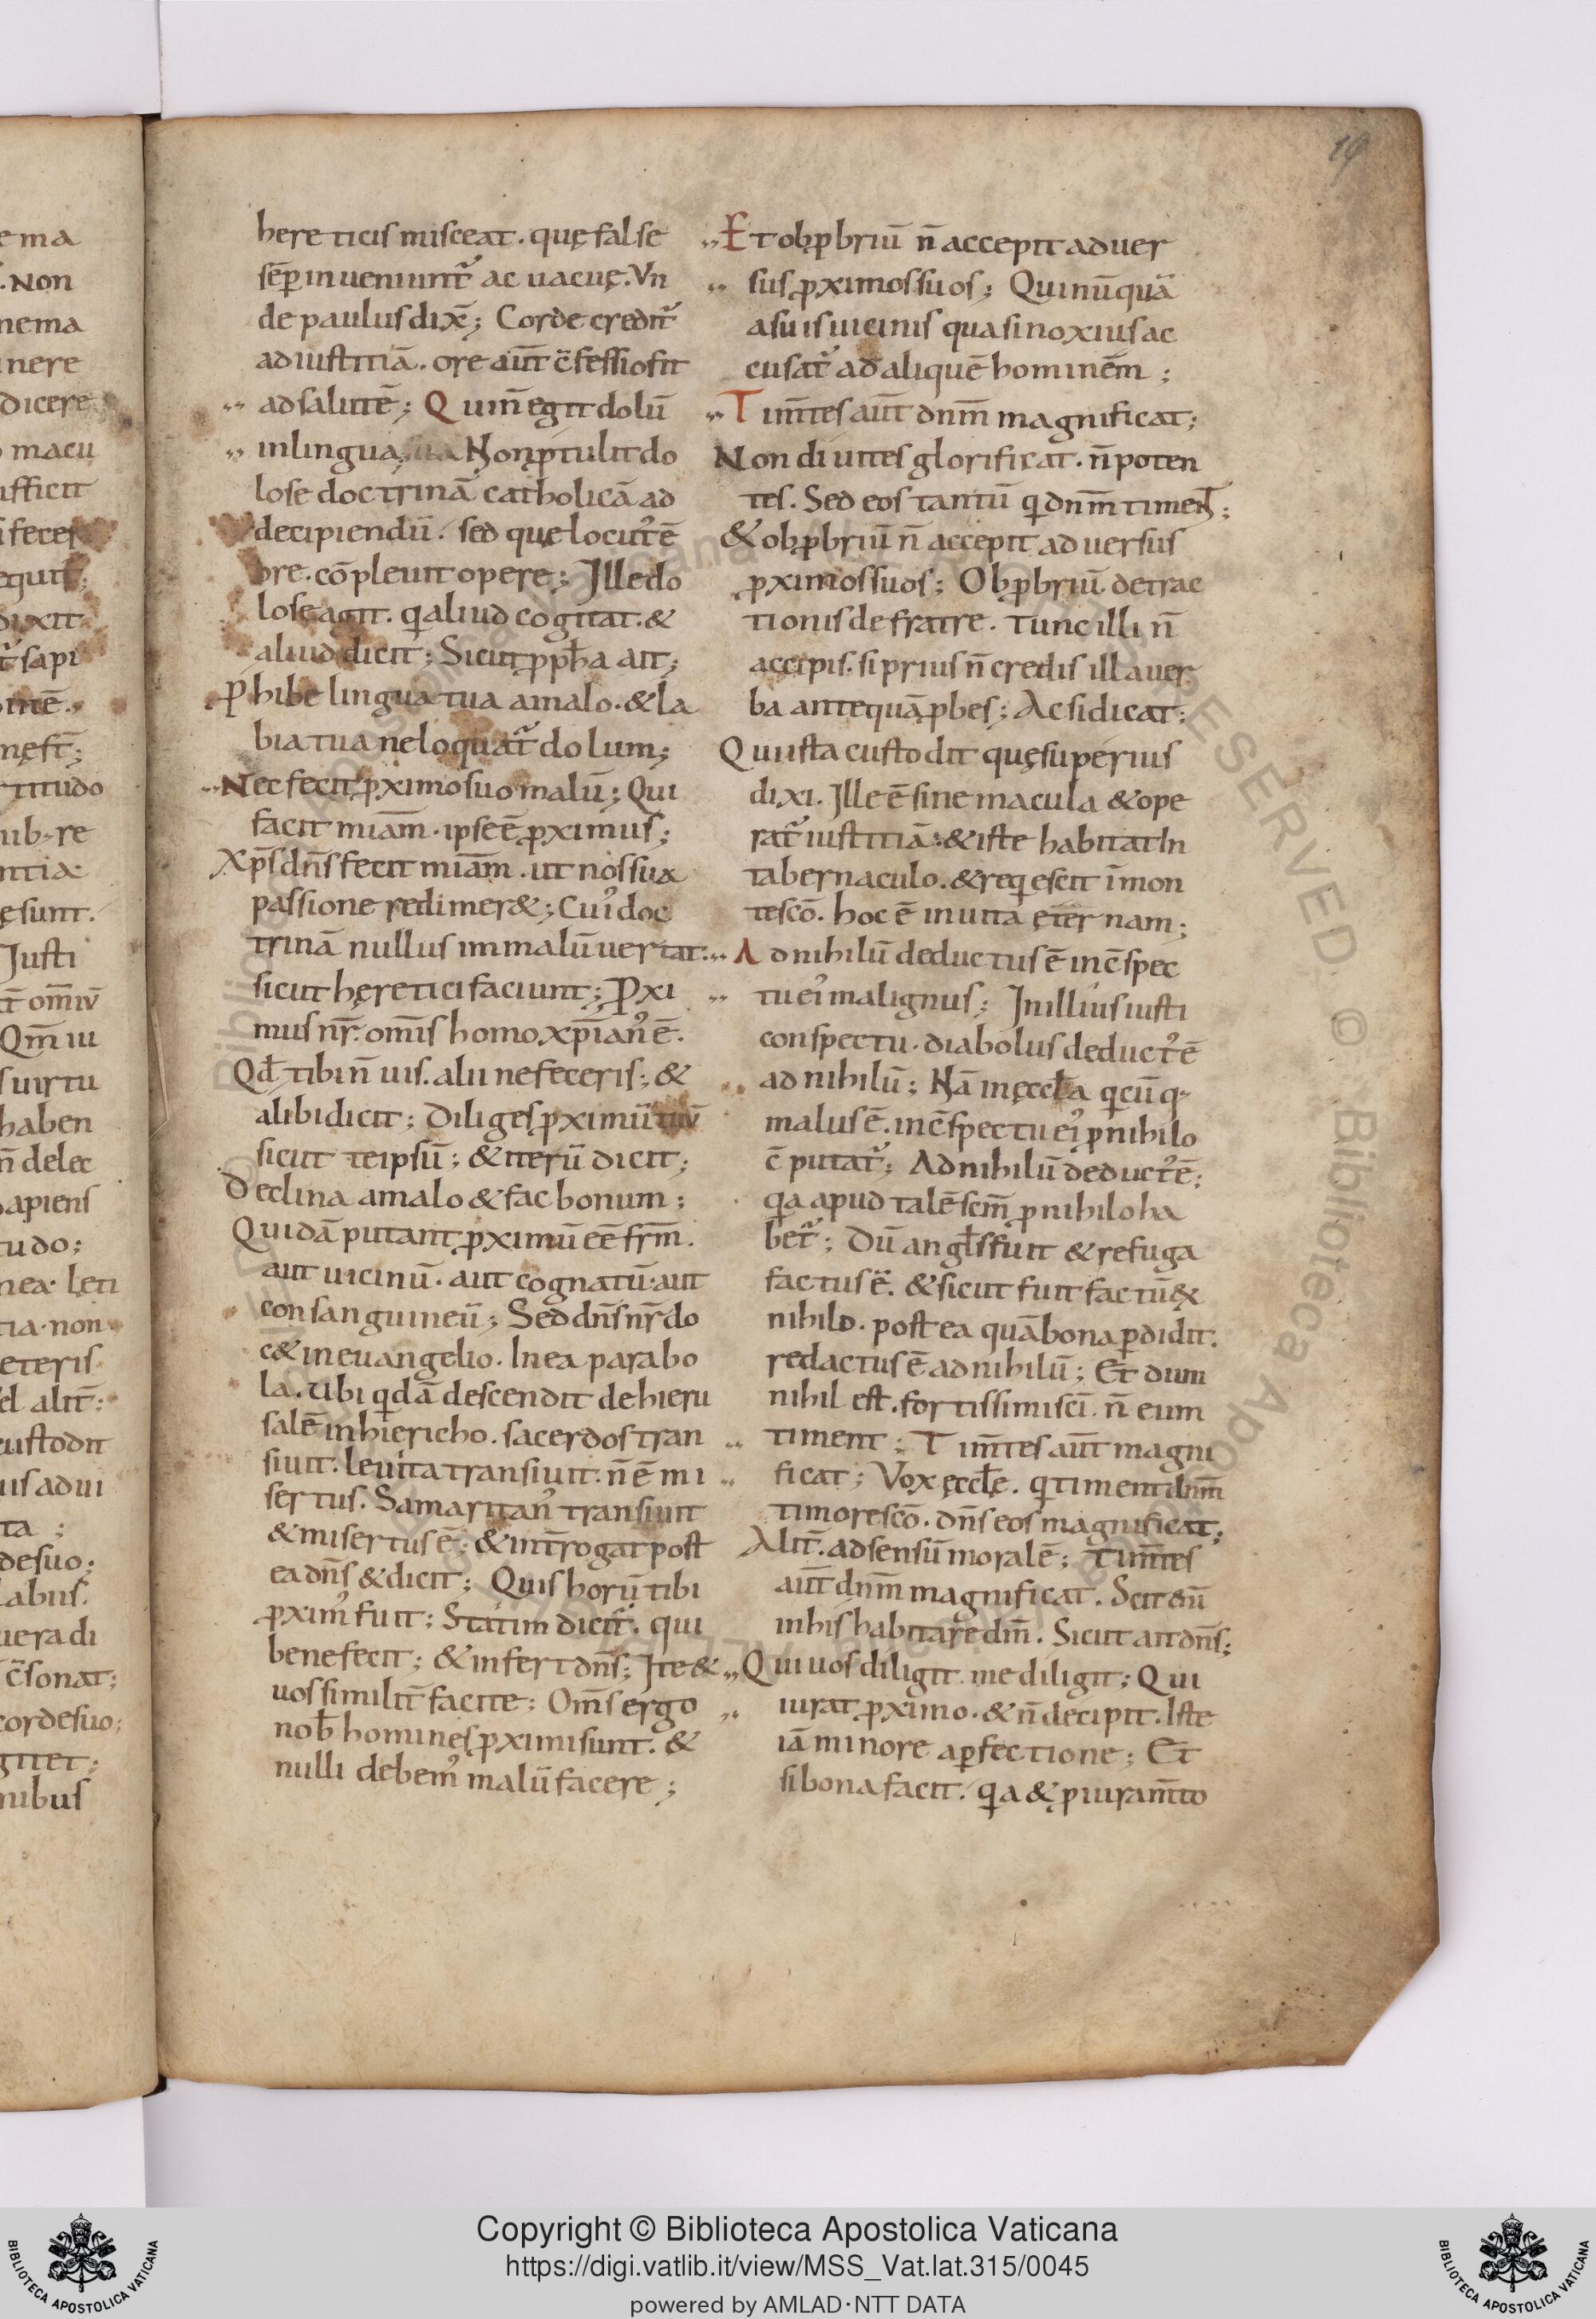 19
e ma
. Non
nema
nere
dicere
macu
ufficit
feces
equit;
dixit
sapi
inē.
nęst̄;
rtitudo
nib; re
ntia.
ęsunt.
Justi
om̄iū
Qm̄ iu
s uirtu
haben
n̄ delec
sapiens
tudo;
nea. lęti
tia. non
eteris
el alit̄;
custodit
uis adui
ta ;
desuo;
labiis.
uera di
c̄sonat;
cordesuo;
gitet;
nibus
hereticis misceat. quę false
sēp inueniunt᷑ ac uacuę. Vn
de paulus dix̄; Corde credit᷑
ad iustitiā. ore aūt c̄fessio fit
ad salutē; Qui n̄ egit dolū
in lingua sua Non ptulit do
lose doctrinā catholicā ad
decipiendū. sed quę locut᷒ ē
ore. cōpleuit opere; Ille do
lose agit. q̇ aliud cogitat. &
aliud dicit; Sicut ppħa ait;
Phibe lingua tua a malo. & la
bia tua ne loquat᷑ dolum;
Nec fecit pximo suo malū; Qui
facit miam̄. ipse ē pximus;
Xp̄s dn̄s fecit miam̄. ut nos sua
passione redimer&; Cui᷒ doc
trinā nullus in malū uertat.
sicut hęretici faciunt; Pxi
mus nr̄. om̄is homo xp̄ian᷒ ē.
Qd̄ tibi n̄ uis. alii ne feceris; &
alibi dicit; Diliges pximū tuū
sicut teipsū; & iterū dicit;
Declina a malo & fac bonum;
Quidā putant pximū eē frm̄.
aut uicinū. aut cognatū. aut
consanguineū; Sed dn̄s nr̄ do
c& in euangelio. In ea parabo
la. ubi q̇dā descendit de hieru
salē in hiericho. sacerdos tran
siuit. leuita transiuit. n̄ ē mi
sertus. Samaritan᷒ transiuit
& misertus ē; & int̄rogat post
ea dn̄s & dicit; Quis horū tibi
pxim᷒ fuit; Statim dicit᷑. qui
bene fecit; & infert dn̄s; Ite &
uos similit̄ facite; Om̄s ergo
nob̄ homines pximi sunt. &
nulli debem᷒ malū facere;
Et obpbriū n̄ accepit aduer
sus pximos suos; Qui nūquā
a suis uicinis quasi noxius ac
cusat᷑ ad aliquē hominēm;
Tim̄tes aūt dnm̄ magnificat;
Non diuites glorificat. n̄ poten
tes. Sed eos tantū q̇ dnm̄ timent;
& obpbriū n̄ accepit aduersus
pximos suos; Obpbriū detrac
tionis de fratre. tunc illi n̄
accipis. si prius n̄ credis illa uer
ba antequā pbes; Ac si dicat;
Qui ista custodit quę superius
dixi. Ille ē sine macula & ope
rat᷑ iustitiā. & iste habitat In
tabernaculo. & req̇escit ī mon
te scō. hoc ē in uita ęternam;
Ad nihilū deductus ē in c̄spec
tu ei᷒ malignus; In illius iusti
conspectu. diabolus deduct᷒ ē
ad nihilū; Nā in ęccła q̇cūq;
malus ē. in c̄spectu ei᷒ p nihilo
c̄putat᷑; Ad nihilū deduct᷒ ē;
q̇a apud talē scm̄ p nihilo ha
bet᷑; Dū angł̄s fuit & refuga
factus ē. & sicut fuit factū &
nihilo. postea quā bona pdidit.
redactus ē ad nihilū; Et dum
nihil est. fortissimi sci᷒. n̄ eum
timent; Tim̄tes aūt magni
ficat; Vox ęccłę. q̇ timent dnm̄
timore scō. dn̄s eos magnificat;
Alit̄. ad sensū moralē; Tim̄tes
aūt dnm̄ magnificat. Scit eū
in his habitare dm̄. Sicut ait dn̄s;
Qui uos diligit. me diligit; Qui
iurat pximo. & n̄ decipit. Iste
iā minore a pfectione; Et
si bona facit. q̇a & p iuram̄to
Copyright © Biblioteca Apostolica Vaticana
https://digi.vatlib.it/view/MSS_Vat.lat.315/0045
powered by AMLAD·NTT DATA
BIBLIOTECA APOSTOLICA VATICANA
BIBLIOTECA APOSTOLICA VATICANA